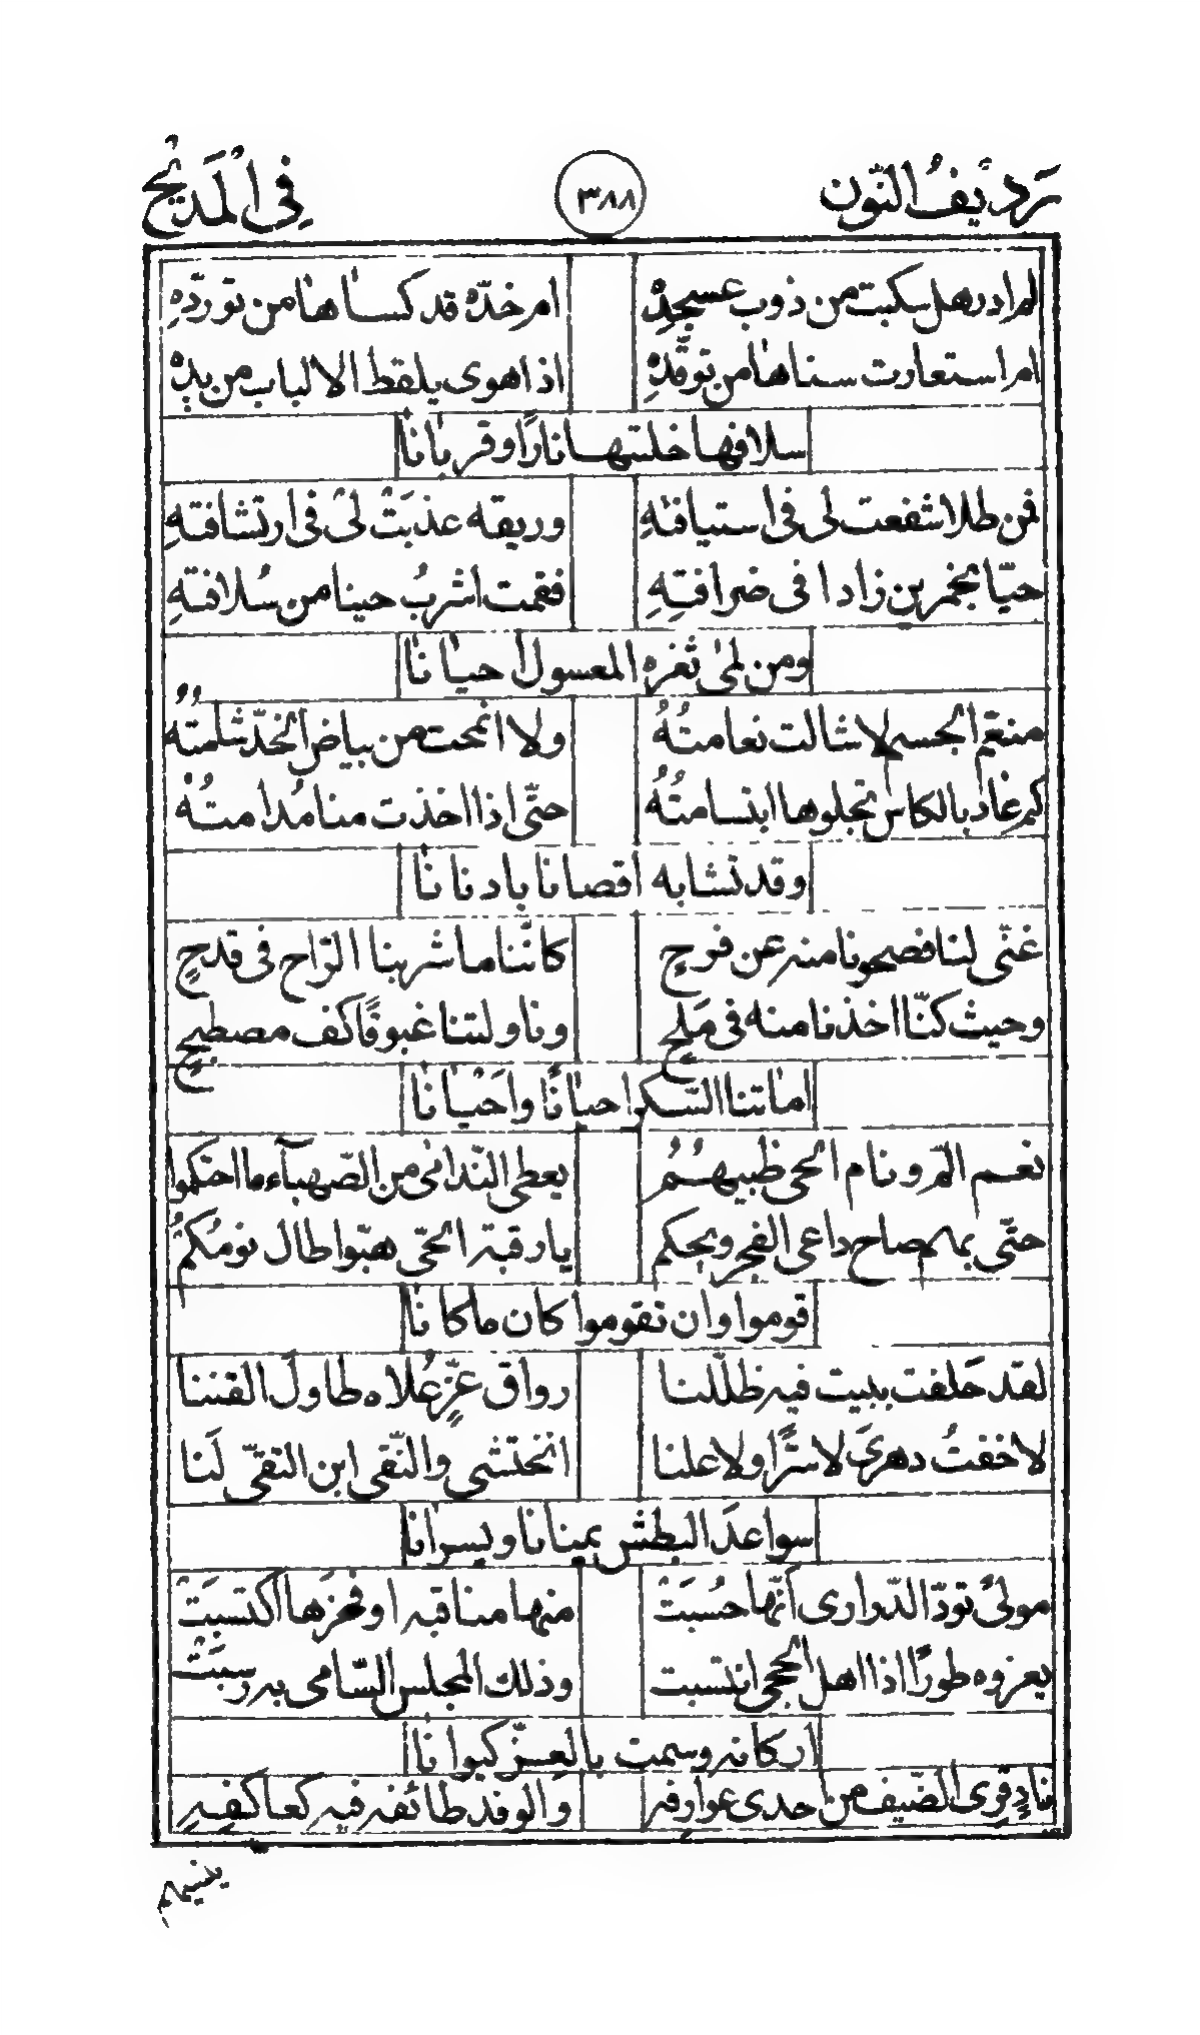 رديفُ النّون ٣٨٨ في المديح
لم ادر هل سكبت من ذوب عسجدهِ ام خدّه قد كساها من تورّدهِ
ام استعارت سناها من توقّدهِ اذا هوى يلقط الالباب من يدهِ
سلافها خلتها نارًا وقربانا
فمن طلا شفعت لى فى استيافتهِ وريقه عذبَتْ لىْ فى ارتشافتهِ
حيّا بخمرين زادا فى ضرافتهِ فقمت اشربُ حينا من سُلافتهِ
ومن لمىٰ ثغره المعسول احيانا
منعّم الجسم لا شالت نعامتُهُ ولا انمحت من بياض الخدّ شامتُهُ
كم غادٍ بالكاس تجلوها ابتسامتُهُ حتّى اذا اخذت منا مُدامتُهُ
وقد تشابه اقصانا بادنانا
غنّى لنا فصحونا منه عن فرحٍ كانّنا ما شربنا الرّاح فى قدحٍ
وحيث كنّا اخذنا منه فى مَلحٍ وناولتنا غبوقًا كف مصطبحٍ
اماتنا السّكر احيانًا واَحْيانا
نعم المّ ونام الحى ظبيهُمُ يعطى النّدامٰى من الصّهبآء ما احتكموا
حتّى بهم صاح داعى الفجر ويحكم يا رقبة الحىّ هبّوا طال نومُكمُ
قوموا وان تقوموا كان ما كانا
لقد حَلفت ببيت فيه ظلّلنا رواق عزٍّ عُلاه طاولَ القننا
لا خفتُ دهرىَ لا سرًّا ولا علنا انختشى والنّقى ابن التقىّ لَنا
سواعدَ البطش يمنانا ويسرانا
مولىً تودّ الدّرارى اَنّها حُسبَتْ منها مناقبه او فخرَها اكتسبَتْ
يعزوه طورًا اذا اهل الحجى انتسبت وذلك المجلس السّامى به رسبَتْ
اركانه وسمت بالعزّ كيوانا
نادٍ قوى الضّيف من احدى عوارفه والوفد طائفه فيه كعاكفِهِ